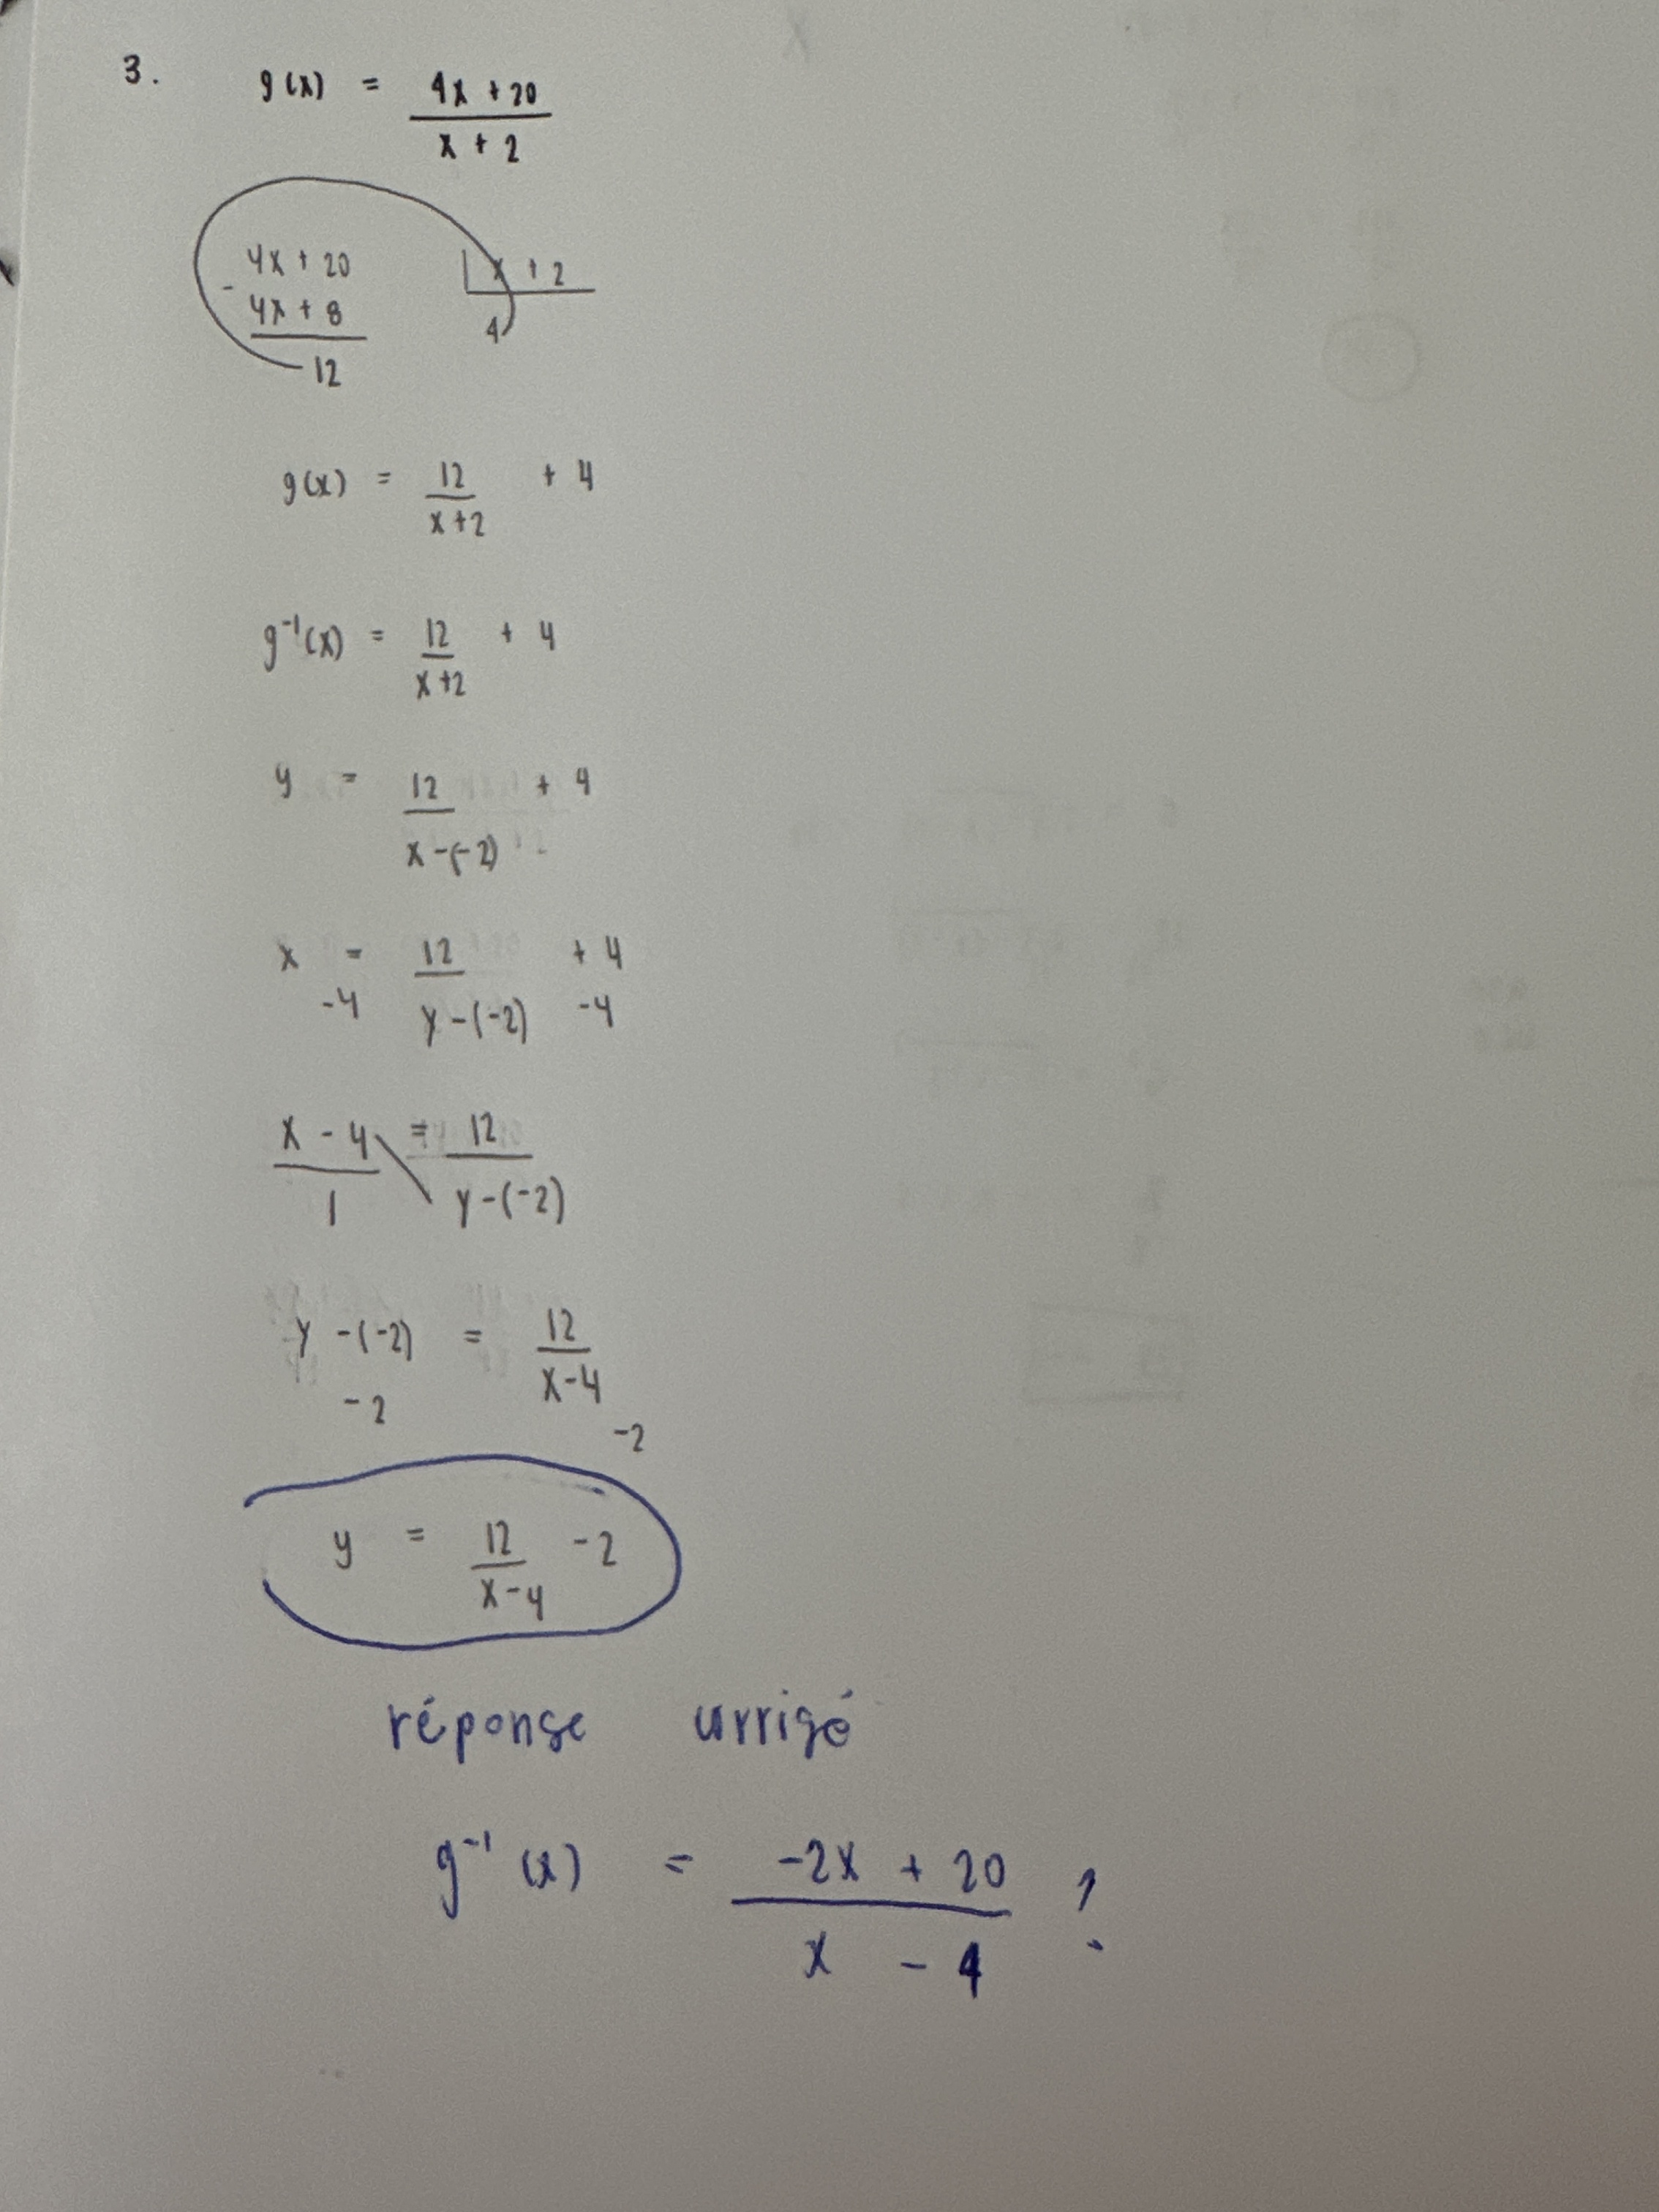 3. g(x) = (4x + 20)/(x + 2)
4x + 20 | x + 2
- 4x + 8 4
12
g(x) = 12/(x+2) + 4
g⁻¹(x) = 12/(x+2) + 4
y = 12/(x-(-2)) + 4
x = 12/(y-(-2)) + 4
-4 -4
(x - 4)/1 = 12/(y-(-2))
y -(-2) = 12/(x-4)
-2 -2
y = 12/(x-4) -2
réponse corrigé
g⁻¹(x) = (-2x + 20)/(x - 4) ?